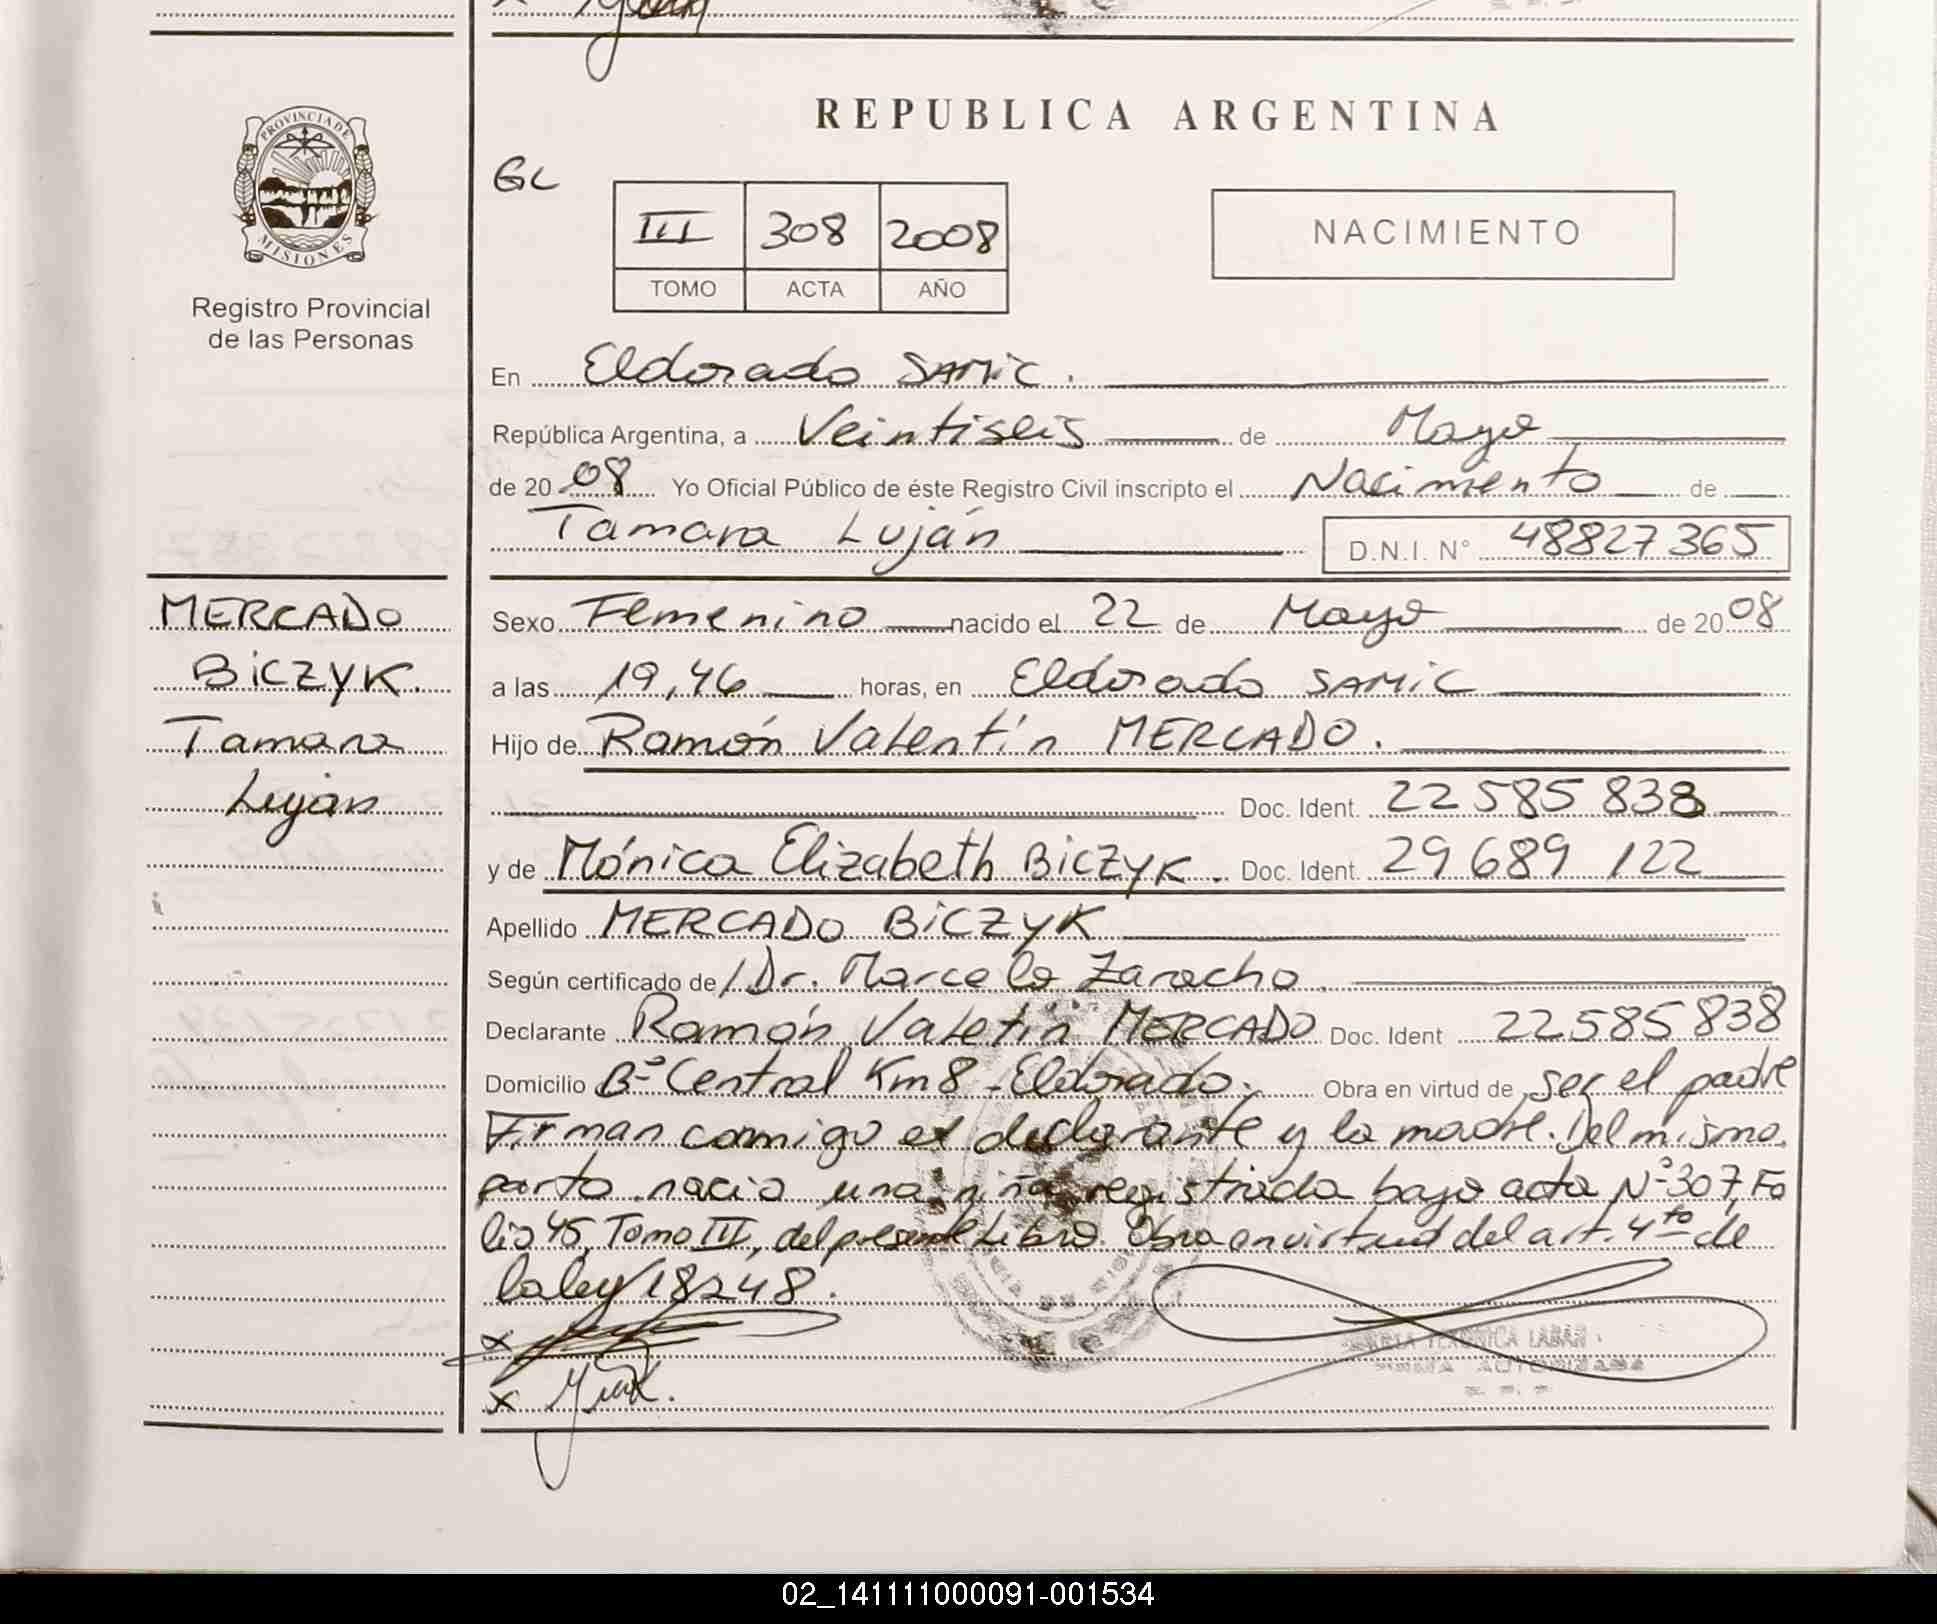 REPUBLICA ARGENTINA
PROVINCIA DE
MISIONES
Registro Provincial
de las Personas
GL
III 308 2008
TOMO ACTA AÑO
NACIMIENTO
En Eldorado SAMIC.
República Argentina, a Veintiseis de Mayo
de 2008 Yo Oficial Público de éste Registro Civil inscripto el Nacimento de
Tamara Luján D.N.I. N° 48827365
MERCADO
BICZYK.
Tamara
Luján
Sexo Femenino nacido el 22 de Mayo de 2008
a las 19,46 horas, en Eldorado SAMIC
Hijo de Ramón Valentín MERCADO.
Doc. Ident. 22 585 838
y de Mónica Elizabeth BICZYK. Doc. Ident. 29 689 122
Apellido MERCADO BICZYK
Según certificado de / Dr. Marcelo Zaracho.
Declarante Ramón Valetín MERCADO Doc. Ident 22 585 838
Domicilio B° Central Km 8 - Eldorado. Obra en virtud de ser el padre
Firman conmigo el declarante y la madre. Del mismo
parto nacio una niña registrada bajo acta N° 307, Fo
lio 45, Tomo III, del presente Libro. Obra en virtud del art. 4to de
la ley 18248.
x
x
VERONICA LABAR
FIRMA AUTORIZADA
02_141111000091-001534